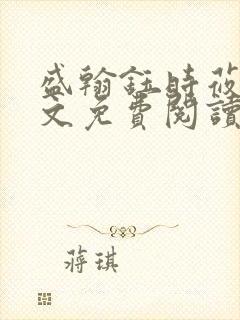 盛翰鈺時莜
文免費閱讀
蔣琪